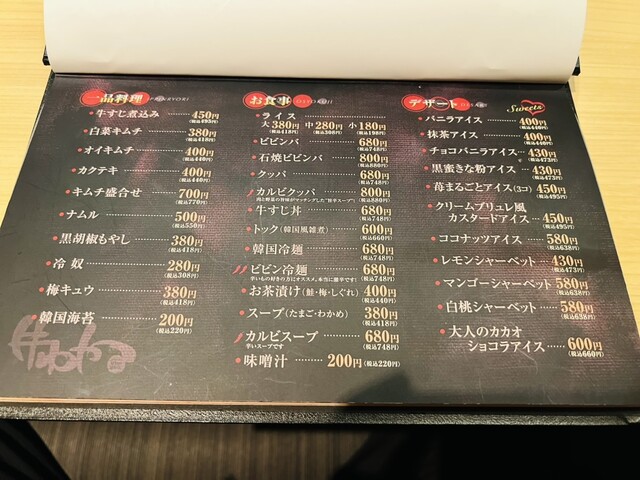 一品料理 IPPINRYORI
牛すじ煮込み 450円 (税込495円)
白菜キムチ 380円 (税込418円)
オイキムチ 400円 (税込440円)
カクテキ 400円 (税込440円)
キムチ盛合せ 700円 (税込770円)
ナムル 500円 (税込550円)
黒胡椒もやし 380円 (税込418円)
冷奴 280円 (税込308円)
梅キュウ 380円 (税込418円)
韓国海苔 200円 (税込220円)
お食事 OSYOKUJI
ライス
大380円 (税込418円) 中280円 (税込308円) 小180円 (税込198円)
ビビンバ 680円 (税込748円)
石焼ビビンバ 800円 (税込880円)
クッパ 680円 (税込748円)
カルビクッパ 800円 (税込880円)
肉と野菜の旨味がマッチングした"旨辛スープ"
牛すじ丼 680円 (税込748円)
トック(韓国風雑煮) 600円 (税込660円)
韓国冷麺 680円 (税込748円)
ビビン冷麺 680円 (税込748円)
辛いもの好きの方にオススメ。本当に激辛です!
お茶漬け(鮭・梅・しぐれ) 400円 (税込440円)
スープ(たまご・わかめ) 380円 (税込418円)
カルビスープ 680円 (税込748円)
辛いスープです
味噌汁 200円 (税込220円)
デザート DESSERT Sweets
バニラアイス 400円 (税込440円)
抹茶アイス 400円 (税込440円)
チョコバニラアイス 430円 (税込473円)
黒蜜きな粉アイス 430円 (税込473円)
苺まるごとアイス(3コ) 450円 (税込495円)
クリームブリュレ風
カスタードアイス 450円 (税込495円)
ココナッツアイス 580円 (税込638円)
レモンシャーベット 430円 (税込473円)
マンゴーシャーベット 580円 (税込638円)
白桃シャーベット 580円 (税込638円)
大人のカカオ
ショコラアイス 600円 (税込660円)